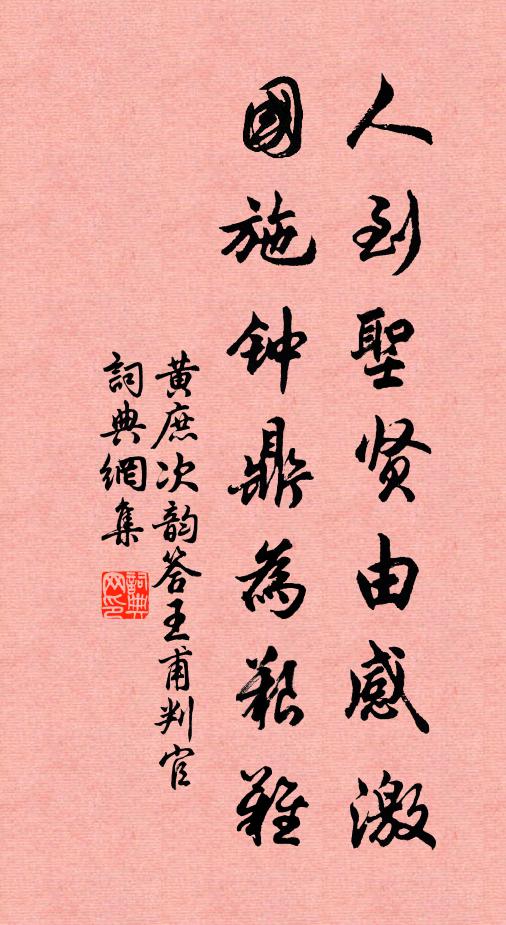 人到聖贤由感激
國施钟鼎為艱難
黄庶次韵答王甫判官
詞典網集
詞典网印